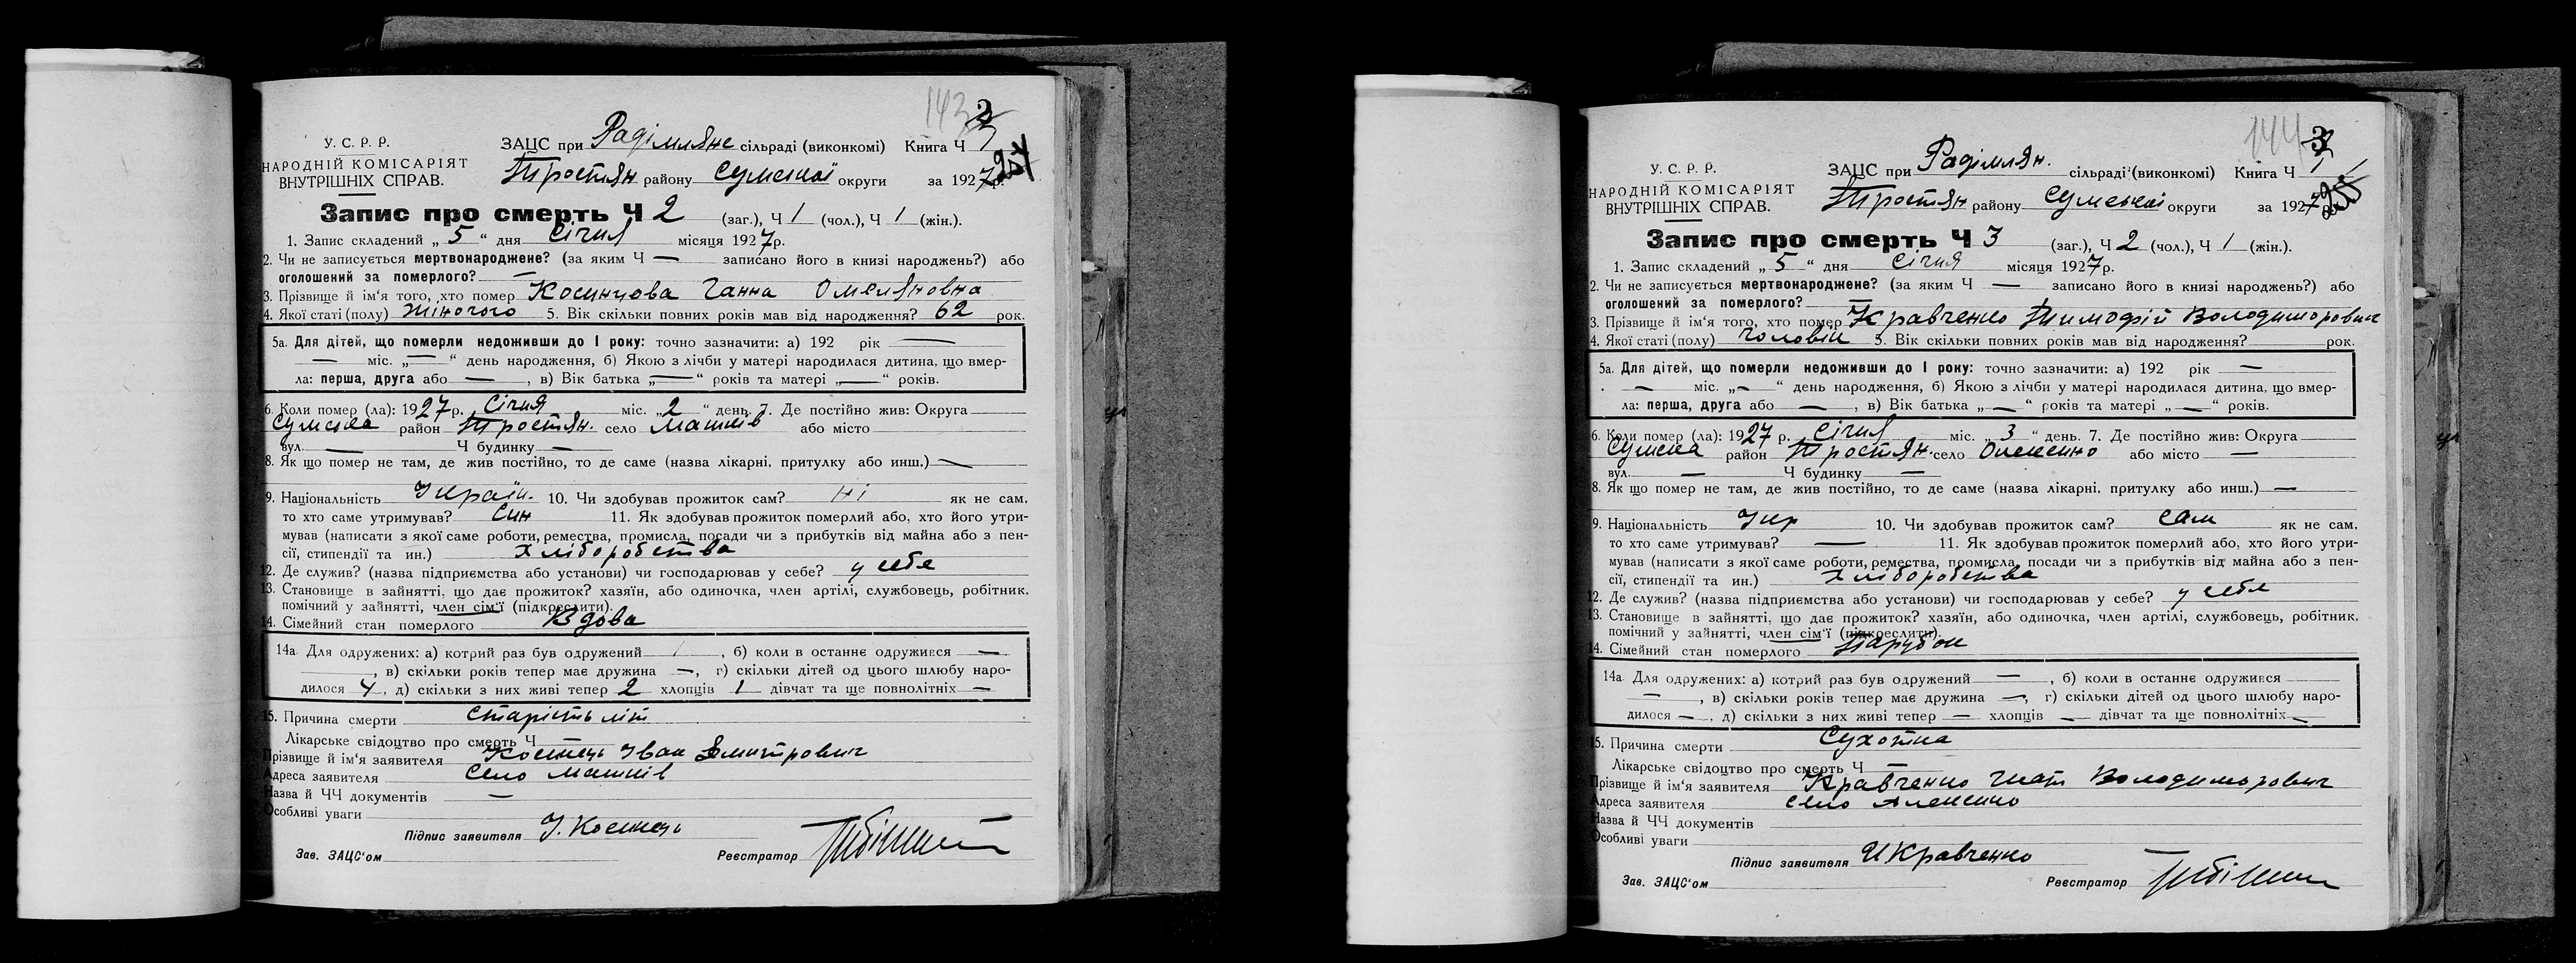 143
2
У. С. Р. Р.
НАРОДНІЙ КОМІСАРІЯТ
ВНУТРІШНІХ СПРАВ.
ЗАЦС при Радімляне сільраді (виконкомі) Книга Ч
Тростян району Сумської округи за 1927 р.
Запис про смерть Ч 2 (заг.), Ч 1 (чол.), Ч 1 (жін.).
1. Запис складений „ 5 “ дня Січня місяця 1927 р.
2. Чи не записується мертвонароджене? (за яким Ч — записано його в книзі народжень?) або
оголошений за померлого? —
3. Прізвище й ім‘я того, хто помер Косинцова Ганна Омеляновна
4. Якої статі (полу) Жіночого 5. Вік скільки повних років мав від народження? 62 рок.
5а. Для дітей, що померли недоживши до 1 року: точно зазначити: а) 192 рік —
— міс. „—“ день народження, б) Якою з лічби у матері народилася дитина, що вмер-
ла: перша, друга або —, в) Вік батька „—“ років та матері „—“ років.
6. Коли помер (ла): 1927 р. Січня міс. „ 2 “ день. 7. Де постійно жив: Округа
Сумська район Тростян. село Машків або місто
вул. — Ч будинку —
8. Як що помер не там, де жив постійно, то де саме (назва лікарні, притулку або инш.) —
9. Національність Україн. 10. Чи здобував прожиток сам? Ні як не сам,
то хто саме утримував? Син 11. Як здобував прожиток померлий або, хто його утри-
мував (написати з якої саме роботи, ремества, промисла, посади чи з прибутків від майна або з пен-
сії, стипендії та ин.) Хліборобства
12. Де служив? (назва підприємства або установи) чи господарював у себе? у себе
13. Становище в зайнятті, що дає прожиток? хазяїн, або одиночка, член артілі, службовець, робітник,
помічний у зайнятті, член сім‘ї (підкреслити).
14. Сімейний стан померлого Вдова
14а. Для одружених: а) котрий раз був одружений , б) коли в останнє одружився —
, в) скільки років тепер має дружина —, г) скільки дітей од цього шлюбу наро-
дилося 4, д) скільки з них живі тепер 2 хлопців 1 дівчат та ще повнолітніх —
15. Причина смерти Старість літ
Лікарське свідоцтво про смерть Ч
Прізвище й ім‘я заявителя Іван Дмитрович
Адреса заявителя Село Машків
Назва й ЧЧ документів —
Особливі уваги
Підпис заявителя
Зав. ЗАЦС‘ом Реєстратор
144
3
У. С. Р. Р.
НАРОДНІЙ КОМІСАРІЯТ
ВНУТРІШНІХ СПРАВ.
ЗАЦС при Радімлян. сільраді (виконкомі) Книга Ч 1
Тростян району Сумської округи за 1927 р.
Запис про смерть Ч 3 (заг.), Ч 2 (чол.), Ч 1 (жін.).
1. Запис складений „ 5 “ дня Січня місяця 1927 р.
2. Чи не записується мертвонароджене? (за яким Ч — записано його в книзі народжень?) або
оголошений за померлого? —
3. Прізвище й ім‘я того, хто помер Кравченко Тимофій Володимирович
4. Якої статі (полу) Чоловік 5. Вік скільки повних років мав від народження? рок.
5а. Для дітей, що померли недоживши до 1 року: точно зазначити: а) 192 рік —
— міс. „—“ день народження, б) Якою з лічби у матері народилася дитина, що вмер-
ла: перша, друга або —, в) Вік батька „—“ років та матері „—“ років.
6. Коли помер (ла): 1927 р. Січня міс. „ 3 “ день. 7. Де постійно жив: Округа
Сумска район Тростян. село Олексино або місто —
вул. — Ч будинку —
8. Як що помер не там, де жив постійно, то де саме (назва лікарні, притулку або инш.) —
9. Національність Укр 10. Чи здобував прожиток сам? Сам як не сам,
то хто саме утримував? — 11. Як здобував прожиток померлий або, хто його утри-
мував (написати з якої саме роботи, ремества, промисла, посади чи з прибутків від майна або з пен-
сії, стипендії та ин.) Хліборобства
12. Де служив? (назва підприємства або установи) чи господарював у себе? у себе
13. Становище в зайнятті, що дає прожиток? хазяїн, або одиночка, член артілі, службовець, робітник,
помічний у зайнятті, член сім‘ї (підкреслити).
14. Сімейний стан померлого Парубок
14а. Для одружених: а) котрий раз був одружений —, б) коли в останнє одружився
—, в) скільки років тепер має дружина —, г) скільки дітей од цього шлюбу наро-
дилося —, д) скільки з них живі тепер — хлопців — дівчат та ще повнолітніх —
15. Причина смерти Сухотка
Лікарське свідоцтво про смерть Ч —
Прізвище й ім‘я заявителя Кравченко Гнат Володимирович
Адреса заявителя село Алексино
Назва й ЧЧ документів
Особливі уваги
Підпис заявителя И Кравченко
Зав. ЗАЦС‘ом Реєстратор